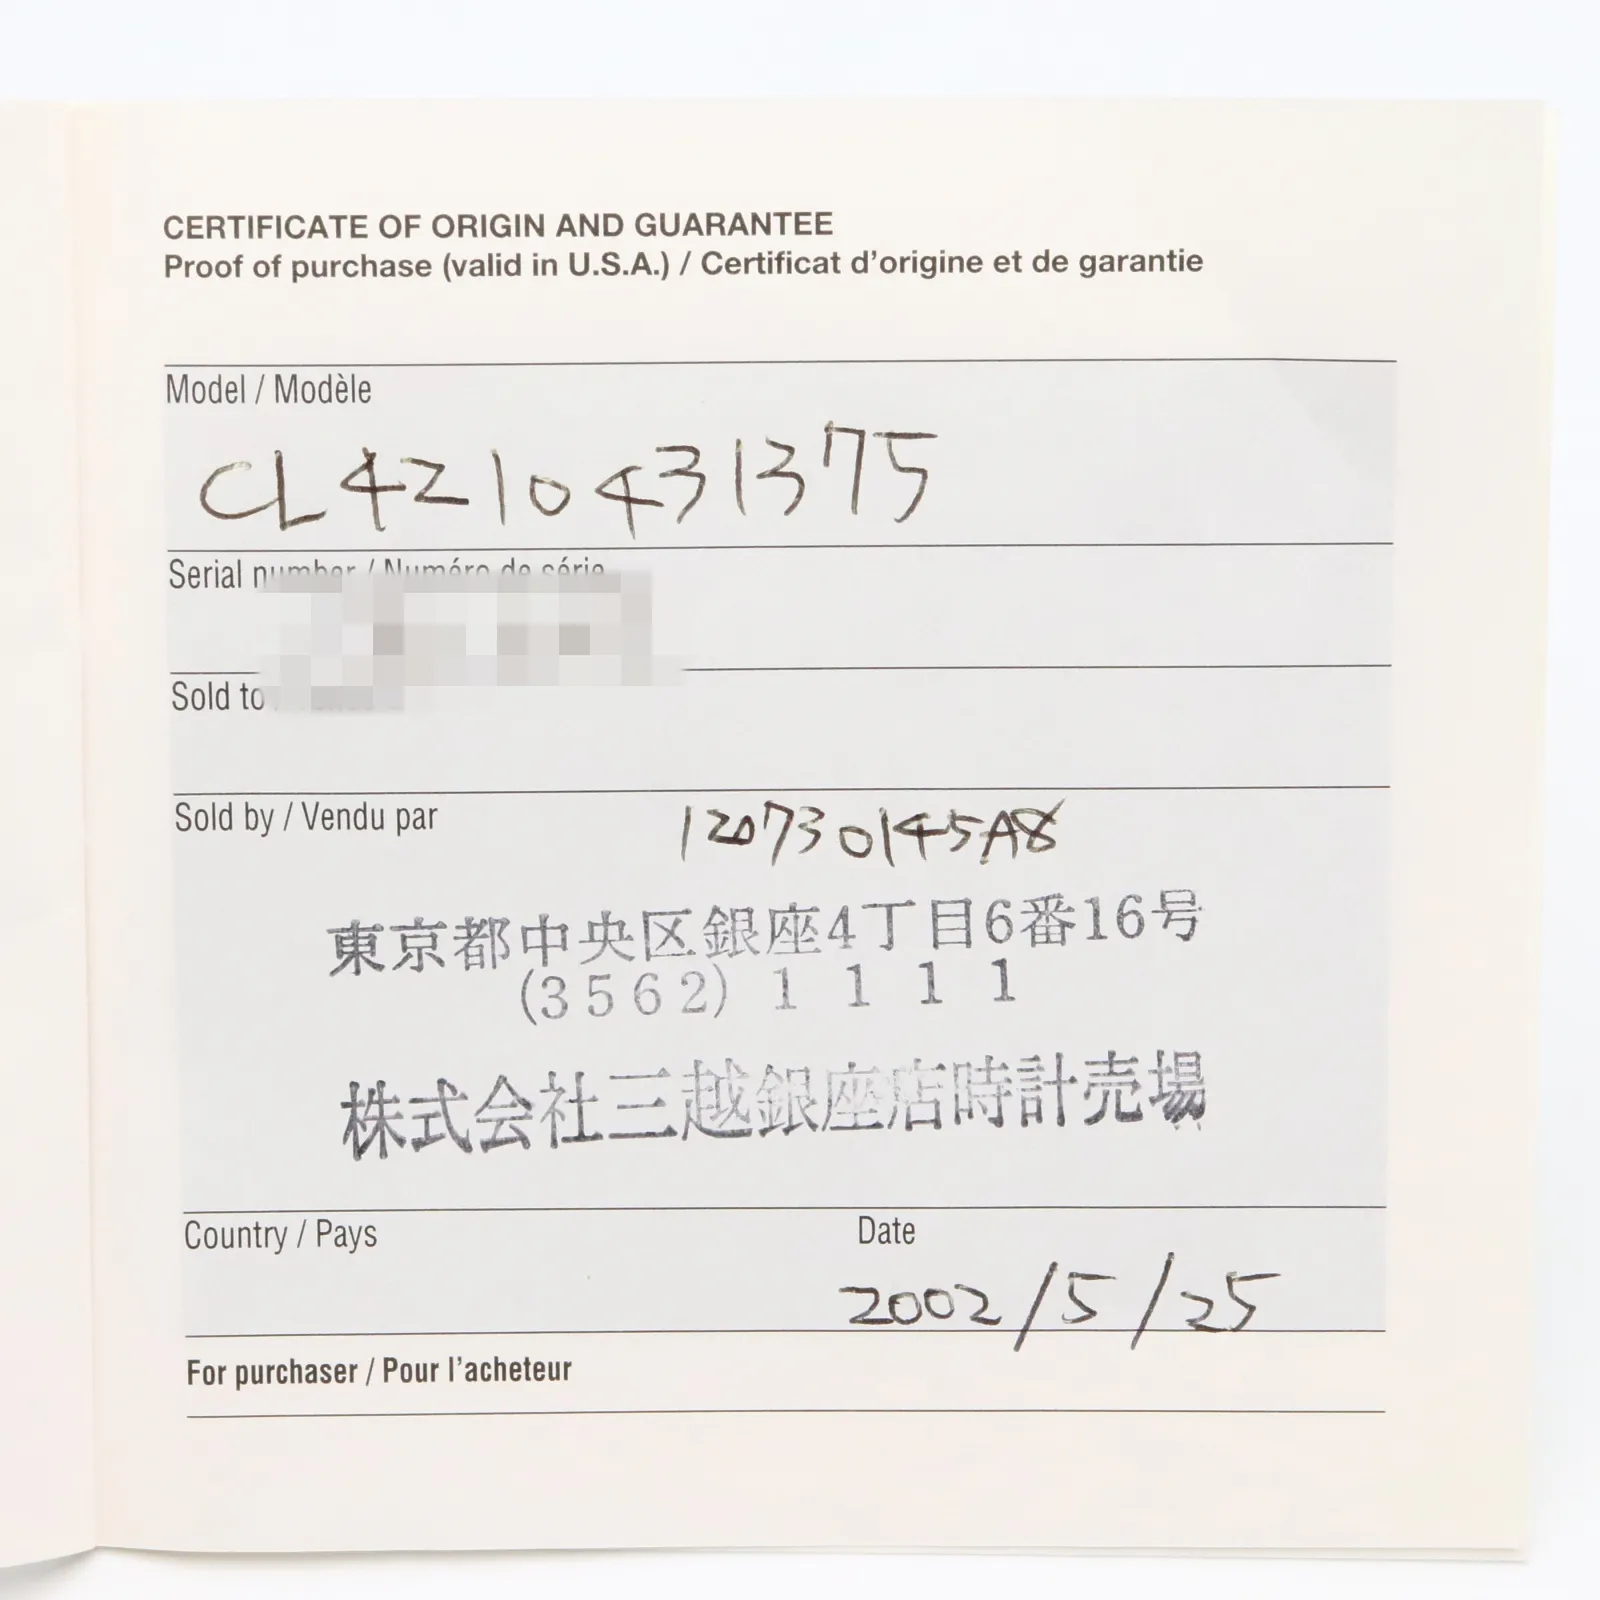 CERTIFICATE OF ORIGIN AND GUARANTEE
Proof of purchase (valid in U.S.A.) / Certificat d'origine et de garantie
Model / Modèle
CL4210431375
Serial number / Numéro de série
Sold to
Sold by / Vendu par
120730145A8
東京都中央区銀座4丁目6番16号
(3562) 1 1 1 1
株式会社三越銀座店時計売場
Country / Pays
Date
2002/5/25
For purchaser / Pour l'acheteur